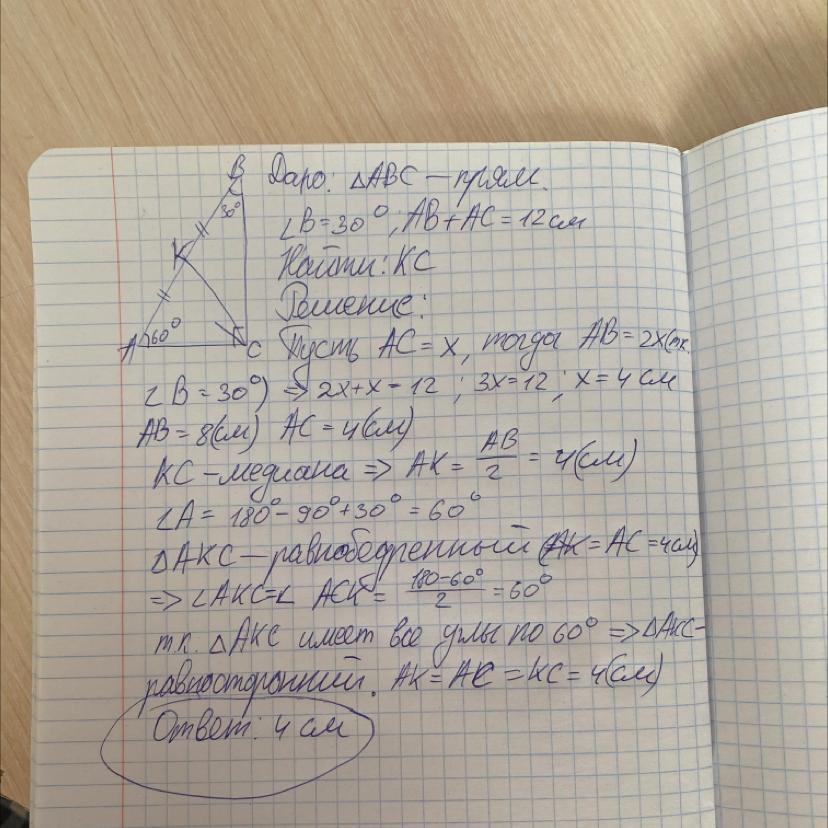 B
Дано: △ABC – прям.
30°
∠B = 30°; AB + AC = 12 см
K
Найти: KC
Решение:
A 60° C
Пусть AC = x, тогда AB = 2x (т.к.
∠B = 30°) => 2x + x = 12 ; 3x = 12 ; x = 4 см
AB = 8(см) AC = 4(см)
KC – медиана => AK = AB/2 = 4(см)
∠A = 180° – 90° + 30° = 60°
△AKC – равнобедренный (AK = AC = 4см)
=> ∠AKC = ∠ ACK = 180–60°/2 = 60°
т.к. △AKC имеет все углы по 60° => △AKC –
равносторонний. AK = AC = KC = 4(см)
Ответ: 4 см